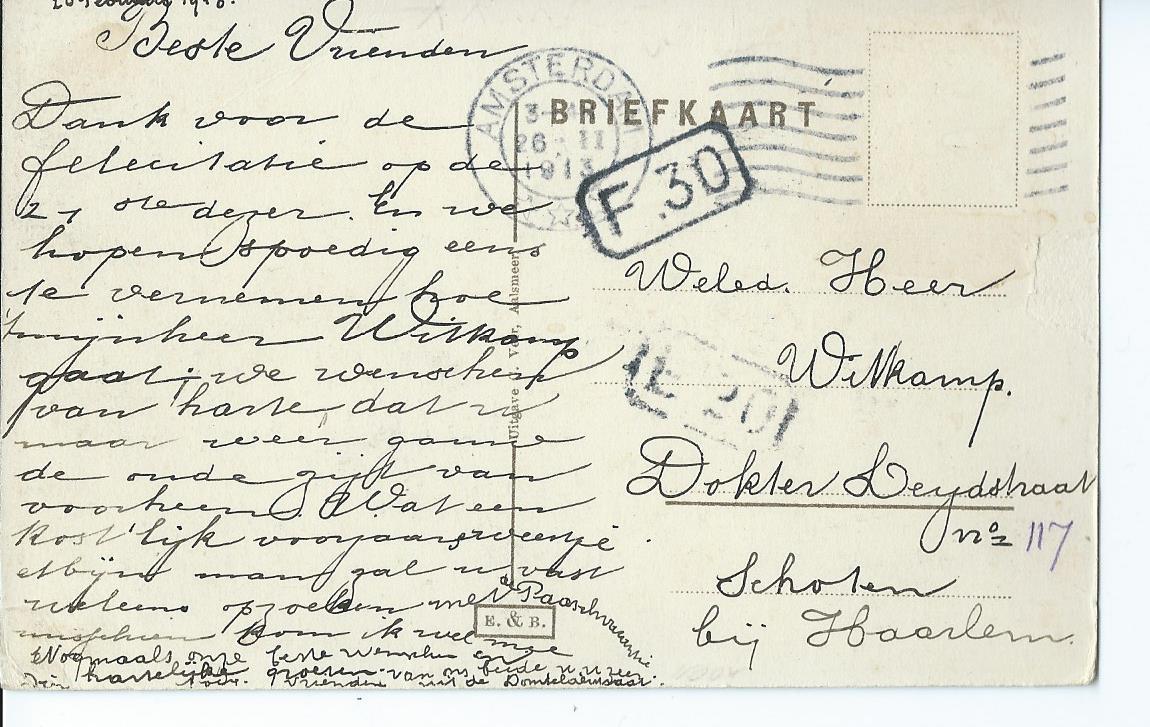 Beste Vrienden
Dank voor de
felicitatie op de
21 ste dezer. En we
hopen spoedig eens
te vernemen hoe
't mijnheer Witkamp
gaat; we wenschen
van harte, dat u
maar weer gauw
de oude zijt van
voorheen. Wat een
kost'lijk voorjaarsweertje
mijn man zal u vast
weleens opzoeken met de Paaschvacantie
misschien kom ik wel mee
Nogmaals onze beste wenschen en
hartelijke groeten van ons beide
Vrienden uit de
AMSTERDAM
26 II
1913
BRIEFKAART
F.30
Uitgave Aalsmeer
Weled. Heer
Witkamp.
L 20
Dokter Leydstraat
no 117
Schoten
bij Haarlem.
E. & B.